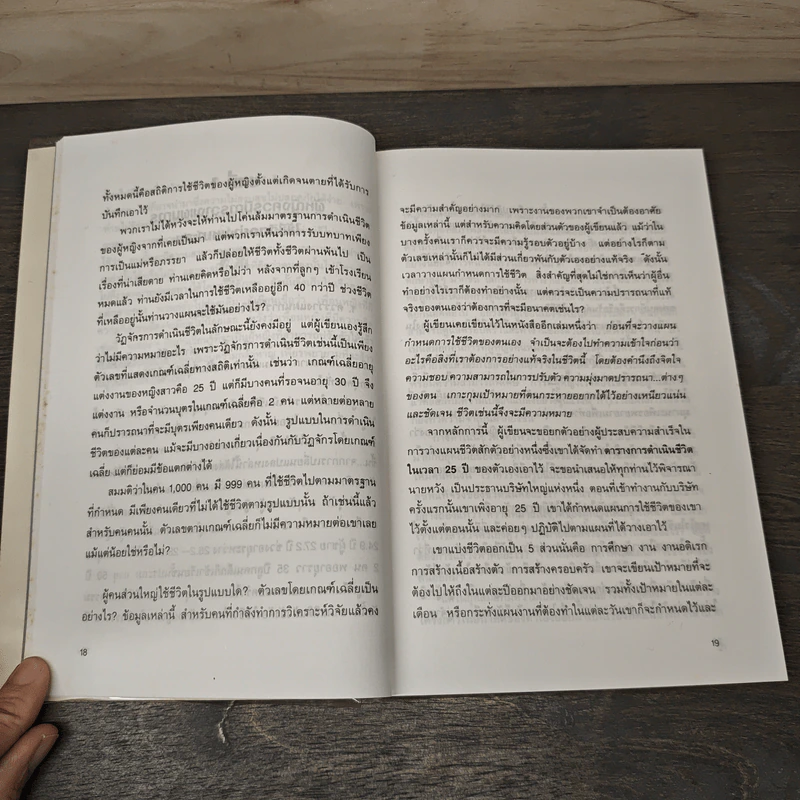 ทั้งหมดนี้คือสถิติการใช้ชีวิตของผู้หญิงตั้งแต่เกิดจนตายที่ได้รับการ
บันทึกเอาไว้
พวกเราไม่ได้หวังจะให้ท่านไปโค่นล้มมาตรฐานการดำเนินชีวิต
ของผู้หญิงจากที่เคยเป็นมา แต่พวกเราเห็นว่าการรับบทบาทเพียง
การเป็นแม่หรือภรรยา แล้วก็ปล่อยให้ชีวิตทั้งชีวิตผ่านพ้นไป เป็น
เรื่องที่น่าเสียดาย ท่านเคยคิดหรือไม่ว่า หลังจากที่ลูกๆ เข้าโรงเรียน
หมดแล้ว ท่านยังมีเวลาในการใช้ชีวิตเหลืออยู่อีก 40 กว่าปี ช่วงชีวิต
ที่เหลืออยู่นั้นท่านวางแผนจะใช้มันอย่างไร?
วัฏจักรการดำเนินชีวิตในลักษณะนี้ยังคงมีอยู่ แต่ผู้เขียนเองรู้สึก
ว่าไม่มีความหมายอะไร เพราะวัฏจักรการดำเนินชีวิตเช่นนี้เป็นเพียง
ตัวเลขที่แสดงเกณฑ์เฉลี่ยทางสถิติเท่านั้น เช่นว่า เกณฑ์เฉลี่ยอายุ
แต่งงานของหญิงสาวคือ 25 ปี แต่ก็มีบางคนที่รอจนอายุ 30 ปี จึง
แต่งงาน หรือจำนวนบุตรในเกณฑ์เฉลี่ยคือ 2 คน แต่หลายต่อหลาย
คนก็ปรารถนาที่จะมีบุตรเพียงคนเดียว ดังนั้น รูปแบบในการดำเนิน
ชีวิตของแต่ละคน แม้จะมีบางอย่างเกี่ยวเนื่องกันกับวัฏจักรโดยเกณฑ์
เฉลี่ย แต่ก็ย่อมมีข้อแตกต่างได้
สมมติว่าในคน 1,000 คน มี 999 คน ที่ใช้ชีวิตไปตามมาตรฐาน
ที่กำหนด มีเพียงคนเดียวที่ไม่ได้ใช้ชีวิตตามรูปแบบนั้น ถ้าเช่นนี้แล้ว
สำหรับคนคนนั้น ตัวเลขตามเกณฑ์เฉลี่ยก็ไม่มีความหมายต่อเขาเลย
แม้แต่น้อยใช่หรือไม่?
ผู้คนส่วนใหญ่ใช้ชีวิตในรูปแบบใด? ตัวเลขโดยเกณฑ์เฉลี่ยเป็น
อย่างไร? ข้อมูลเหล่านี้ สำหรับคนที่กำลังทำการวิเคราะห์วิจัยแล้วคง
18
จะมีความสำคัญอย่างมาก เพราะงานของพวกเขาจำเป็นต้องอาศัย
ข้อมูลเหล่านี้ แต่สำหรับความคิดโดยส่วนตัวของผู้เขียนแล้ว แม้ว่าใน
บางครั้งคนเราก็ควรจะมีความรู้รอบตัวอยู่บ้าง แต่อย่างไรก็ตาม
ตัวเลขเหล่านั้นก็ไม่ได้มีส่วนเกี่ยวพันกับตัวเองอย่างแท้จริง ดังนั้น
เวลาวางแผนกำหนดการใช้ชีวิต สิ่งสำคัญที่สุดไม่ใช่การเห็นว่าผู้อื่น
ทำอย่างไรเราก็ต้องทำอย่างนั้น แต่ควรจะเป็นความปรารถนาที่แท้
จริงของตนเองว่าต้องการที่จะมีอนาคตเช่นไร?
ผู้เขียนเคยเขียนไว้ในหนังสืออีกเล่มหนึ่งว่า ก่อนที่จะวางแผน
กำหนดการใช้ชีวิตของตนเอง จำเป็นจะต้องไปทำความเข้าใจก่อนว่า
อะไรคือสิ่งที่เราต้องการอย่างแท้จริงในชีวิตนี้ โดยต้องคำนึงถึงจิตใจ
ความชอบ ความสามารถในการปรับตัว ความมุ่งมาดปรารถนา...ต่างๆ
ของตน เกาะกุมเป้าหมายที่ตนกระหายอยากได้ไว้อย่างเหนียวแน่น
และชัดเจน ชีวิตเช่นนี้จึงจะมีความหมาย
จากหลักการนี้ ผู้เขียนจะขอยกตัวอย่างผู้ประสบความสำเร็จใน
การวางแผนชีวิตสักตัวอย่างหนึ่งซึ่งเขาได้จัดทำ ตารางการดำเนินชีวิต
ในเวลา 25 ปี ของตัวเองเอาไว้ จะขอนำเสนอให้ทุกท่านไว้พิจารณา
นายหวัง เป็นประธานบริษัทใหญ่แห่งหนึ่ง ตอนที่เข้าทำงานกับบริษัท
ครั้งแรกนั้นเขาเพิ่งอายุ 25 ปี เขาได้กำหนดแผนการใช้ชีวิตของเขา
ไว้ตั้งแต่ตอนนั้น และค่อยๆ ปฏิบัติไปตามแผนที่ได้วางเอาไว้
เขาแบ่งชีวิตออกเป็น 5 ส่วนนั่นคือ การศึกษา งาน งานอดิเรก
การสร้างเนื้อสร้างตัว การสร้างครอบครัว เขาจะเขียนเป้าหมายที่จะ
ต้องไปให้ถึงในแต่ละปีออกมาอย่างชัดเจน รวมทั้งเป้าหมายในแต่ละ
เดือน หรือกระทั่งแผนงานที่ต้องทำในแต่ละวันเขาก็จะกำหนดไว้และ
19